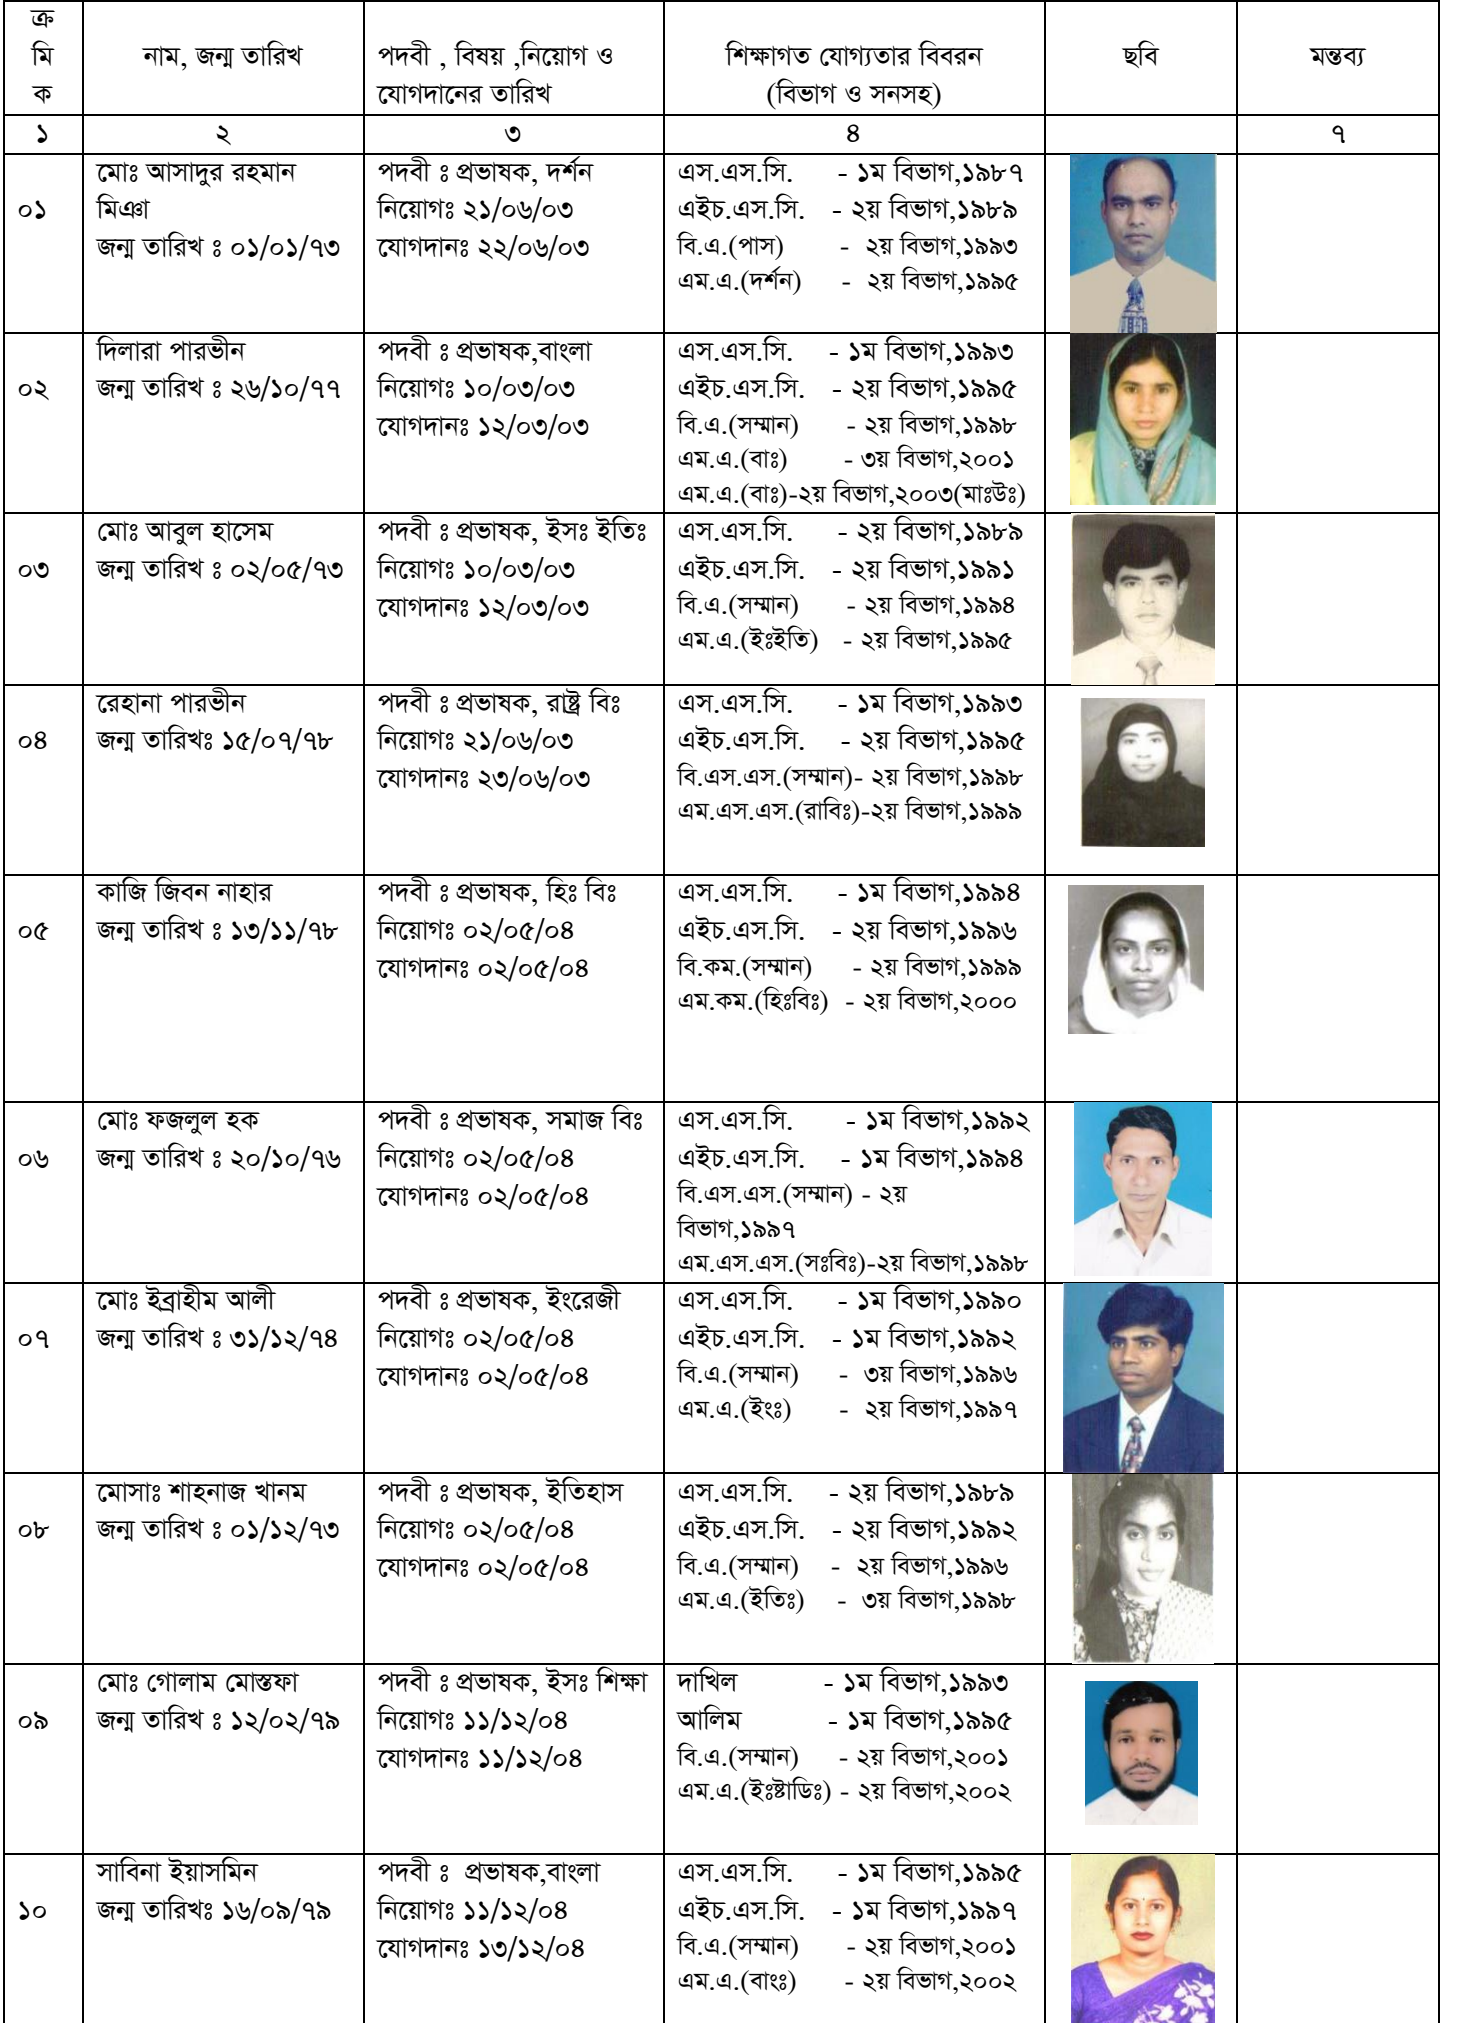 ক্রমিক
নাম, জন্ম তারিখ
পদবী , বিষয় ,নিয়োগ ও
যোগদানের তারিখ
শিক্ষাগত যোগ্যতার বিবরন
(বিভাগ ও সনসহ)
ছবি
মন্তব্য
১
২
৩
৪
৭
০১
মোঃ আসাদুর রহমান
মিঞা
জন্ম তারিখ ঃ ০১/০১/৭৩
পদবী ঃ প্রভাষক, দর্শন
নিয়োগঃ ২১/০৬/০৩
যোগদানঃ ২২/০৬/০৩
এস.এস.সি. - ১ম বিভাগ,১৯৮৭
এইচ.এস.সি. - ২য় বিভাগ,১৯৮৯
বি.এ.(পাস) - ২য় বিভাগ,১৯৯৩
এম.এ.(দর্শন) - ২য় বিভাগ,১৯৯৫
০২
দিলারা পারভীন
জন্ম তারিখ ঃ ২৬/১০/৭৭
পদবী ঃ প্রভাষক,বাংলা
নিয়োগঃ ১০/০৩/০৩
যোগদানঃ ১২/০৩/০৩
এস.এস.সি. - ১ম বিভাগ,১৯৯৩
এইচ.এস.সি. - ২য় বিভাগ,১৯৯৫
বি.এ.(সম্মান) - ২য় বিভাগ,১৯৯৮
এম.এ.(বাঃ) - ৩য় বিভাগ,২০০১
এম.এ.(বাঃ)-২য় বিভাগ,২০০৩(মাঃউঃ)
০৩
মোঃ আবুল হাসেম
জন্ম তারিখ ঃ ০২/০৫/৭৩
পদবী ঃ প্রভাষক, ইসঃ ইতিঃ
নিয়োগঃ ১০/০৩/০৩
যোগদানঃ ১২/০৩/০৩
এস.এস.সি. - ২য় বিভাগ,১৯৮৯
এইচ.এস.সি. - ২য় বিভাগ,১৯৯১
বি.এ.(সম্মান) - ২য় বিভাগ,১৯৯৪
এম.এ.(ইঃইতি) - ২য় বিভাগ,১৯৯৫
০৪
রেহানা পারভীন
জন্ম তারিখঃ ১৫/০৭/৭৮
পদবী ঃ প্রভাষক, রাষ্ট্র বিঃ
নিয়োগঃ ২১/০৬/০৩
যোগদানঃ ২৩/০৬/০৩
এস.এস.সি. - ১ম বিভাগ,১৯৯৩
এইচ.এস.সি. - ২য় বিভাগ,১৯৯৫
বি.এস.এস.(সম্মান)- ২য় বিভাগ,১৯৯৮
এম.এস.এস.(রাবিঃ)-২য় বিভাগ,১৯৯৯
০৫
কাজি জিবন নাহার
জন্ম তারিখ ঃ ১৩/১১/৭৮
পদবী ঃ প্রভাষক, হিঃ বিঃ
নিয়োগঃ ০২/০৫/০৪
যোগদানঃ ০২/০৫/০৪
এস.এস.সি. - ১ম বিভাগ,১৯৯৪
এইচ.এস.সি. - ২য় বিভাগ,১৯৯৬
বি.কম.(সম্মান) - ২য় বিভাগ,১৯৯৯
এম.কম.(হিঃবিঃ) - ২য় বিভাগ,২০০০
০৬
মোঃ ফজলুল হক
জন্ম তারিখ ঃ ২০/১০/৭৬
পদবী ঃ প্রভাষক, সমাজ বিঃ
নিয়োগঃ ০২/০৫/০৪
যোগদানঃ ০২/০৫/০৪
এস.এস.সি. - ১ম বিভাগ,১৯৯২
এইচ.এস.সি. - ১ম বিভাগ,১৯৯৪
বি.এস.এস.(সম্মান) - ২য়
বিভাগ,১৯৯৭
এম.এস.এস.(সঃবিঃ)-২য় বিভাগ,১৯৯৮
০৭
মোঃ ইব্রাহীম আলী
জন্ম তারিখ ঃ ৩১/১২/৭৪
পদবী ঃ প্রভাষক, ইংরেজী
নিয়োগঃ ০২/০৫/০৪
যোগদানঃ ০২/০৫/০৪
এস.এস.সি. - ১ম বিভাগ,১৯৯০
এইচ.এস.সি. - ১ম বিভাগ,১৯৯২
বি.এ.(সম্মান) - ৩য় বিভাগ,১৯৯৬
এম.এ.(ইংঃ) - ২য় বিভাগ,১৯৯৭
০৮
মোসাঃ শাহনাজ খানম
জন্ম তারিখ ঃ ০১/১২/৭৩
পদবী ঃ প্রভাষক, ইতিহাস
নিয়োগঃ ০২/০৫/০৪
যোগদানঃ ০২/০৫/০৪
এস.এস.সি. - ২য় বিভাগ,১৯৮৯
এইচ.এস.সি. - ২য় বিভাগ,১৯৯২
বি.এ.(সম্মান) - ২য় বিভাগ,১৯৯৬
এম.এ.(ইতিঃ) - ৩য় বিভাগ,১৯৯৮
০৯
মোঃ গোলাম মোস্তফা
জন্ম তারিখ ঃ ১২/০২/৭৯
পদবী ঃ প্রভাষক, ইসঃ শিক্ষা
নিয়োগঃ ১১/১২/০৪
যোগদানঃ ১১/১২/০৪
দাখিল - ১ম বিভাগ,১৯৯৩
আলিম - ১ম বিভাগ,১৯৯৫
বি.এ.(সম্মান) - ২য় বিভাগ,২০০১
এম.এ.(ইঃষ্টাডিঃ) - ২য় বিভাগ,২০০২
১০
সাবিনা ইয়াসমিন
জন্ম তারিখঃ ১৬/০৯/৭৯
পদবী ঃ প্রভাষক,বাংলা
নিয়োগঃ ১১/১২/০৪
যোগদানঃ ১৩/১২/০৪
এস.এস.সি. - ১ম বিভাগ,১৯৯৫
এইচ.এস.সি. - ১ম বিভাগ,১৯৯৭
বি.এ.(সম্মান) - ২য় বিভাগ,২০০১
এম.এ.(বাংঃ) - ২য় বিভাগ,২০০২